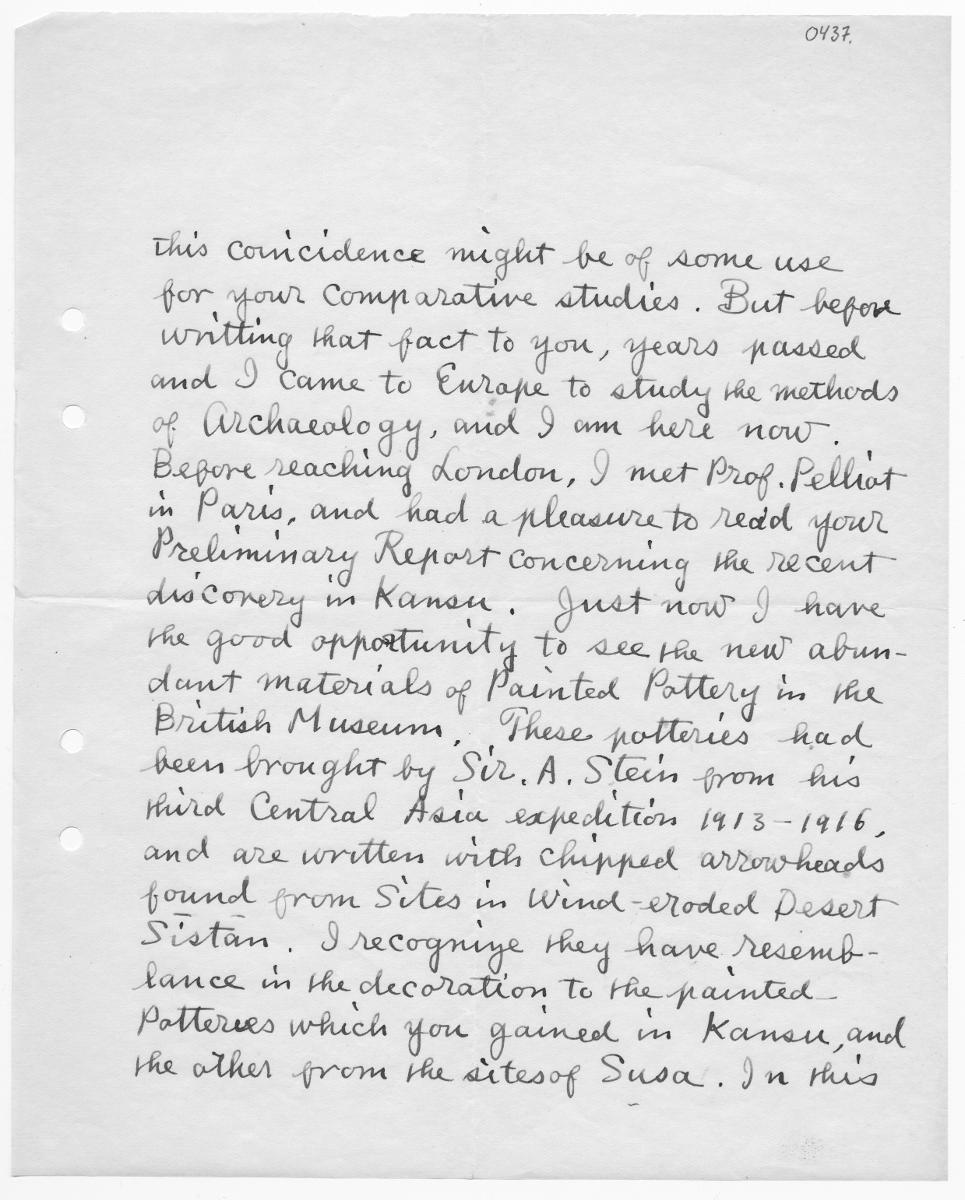 0437.
this coincidence might be of some use
for your comparative studies. But before
writting that fact to you, years passed
and I came to Europe to study the methods
of Archaeology, and I am here now.
Before reaching London, I met Prof. Pelliot
in Paris, and had a pleasure to read your
Preliminary Report concerning the recent
discovery in Kansu. Just now I have
the good opportunity to see the new abun-
dant materials of Painted Pottery in the
British Museum. These potteries had
been brought by Sir. A. Stein from his
third Central Asia expedition 1913-1916,
and are written with chipped arrowheads
found from Sites in Wind-eroded Desert
Sīstān. I recognize they have resemb-
lance in the decoration to the painted
Potteries which you gained in Kansu, and
the other from the sites of Susa. In this